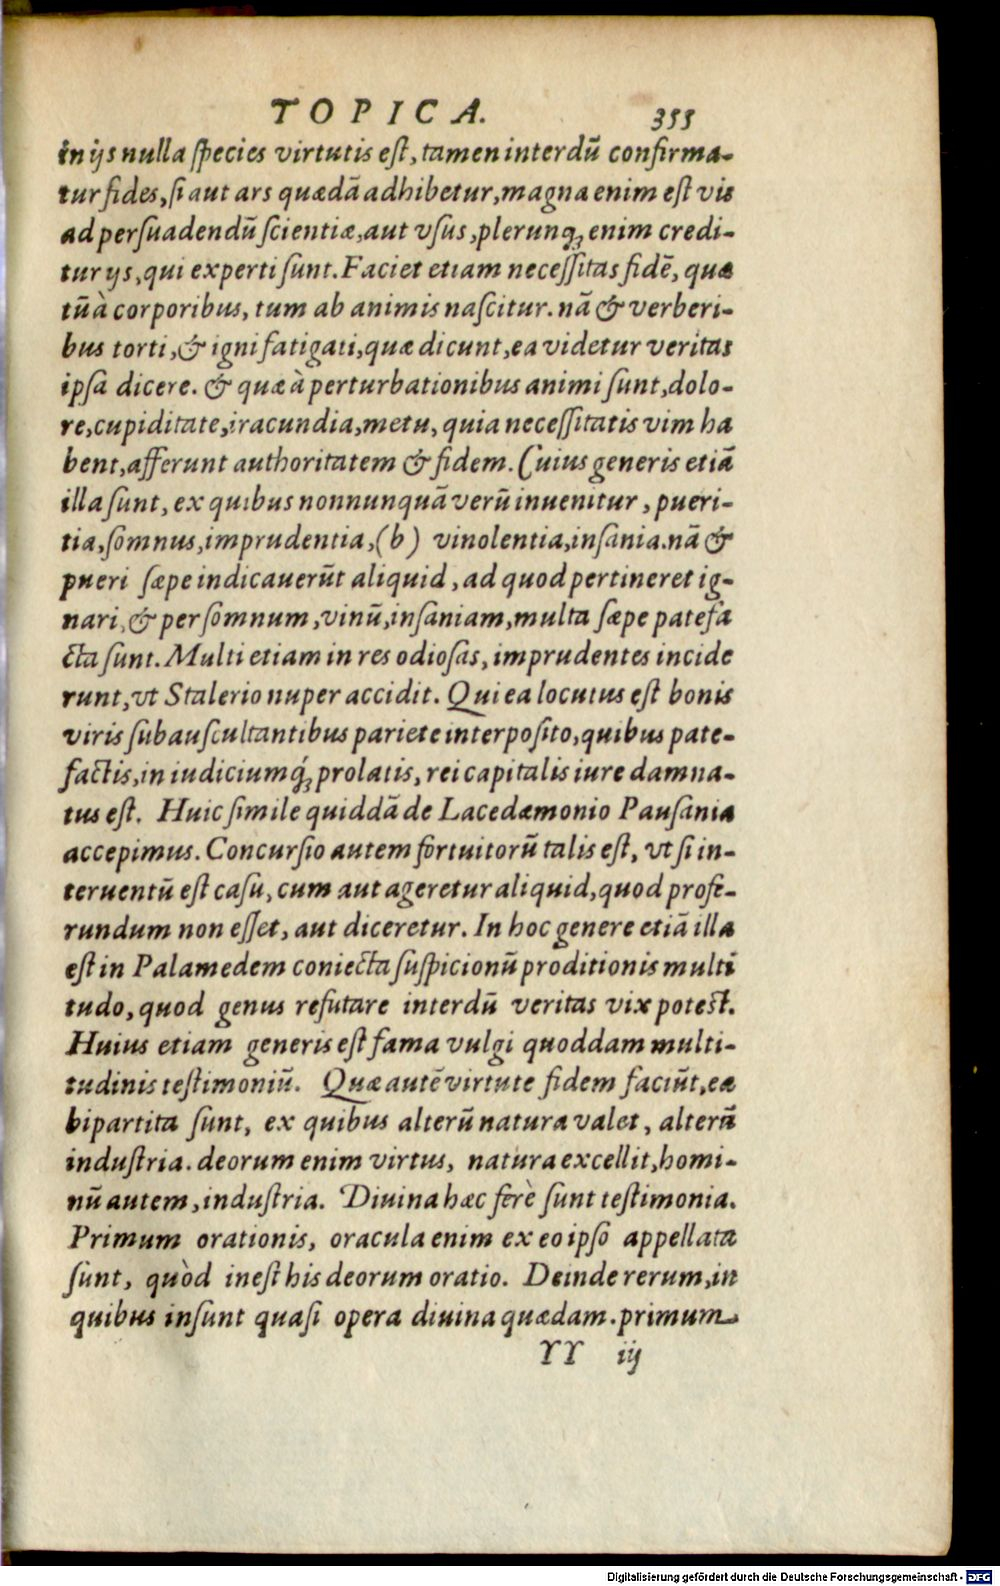 TOPICA. 355
in ijs nulla species virtutis est, tamen interdũ confirma-
tur fides, si aut ars quædã adhibetur, magna enim est vis
ad persuadendũ scientiæ, aut vsus, plerunq; enim credi-
tur ijs, qui experti sunt. Faciet etiam necessitas fidẽ, quæ
tũ à corporibus, tum ab animis nascitur. nã & verberi-
bus torti, & igni fatigati, quæ dicunt, ea videtur veritas
ipsa dicere. & quæ à perturbationibus animi sunt, dolo-
re, cupiditate, iracundia, metu, quia necessitatis vim ha
bent, afferunt authoritatem & fidem. Cuius generis etiã
illa sunt, ex quibus nonnunquã verũ inuenitur, pueri-
tia, somnus, imprudentia, (b) vinolentia, insania. nã &
pueri sæpe indicauerũt aliquid, ad quod pertineret ig-
nari, & per somnum, vinũ, insaniam, multa sæpe patefa
cta sunt. Multi etiam in res odiosas, imprudentes incide
runt, vt Stalerio nuper accidit. Qui ea locutus est bonis
viris subauscultantibus pariete interposito, quibus pate-
factis, in iudiciumq́; prolatis, rei capitalis iure damna-
tus est. Huic simile quiddã de Lacedæmonio Pausania
accepimus. Concursio autem fortuitorũ talis est, vt si in-
teruentũ est casu, cum aut ageretur aliquid, quod profe-
rundum non esset, aut diceretur. In hoc genere etiã illa
est in Palamedem coniecta suspicionũ proditionis multi
tudo, quod genus refutare interdũ veritas vix potest.
Huius etiam generis est fama vulgi quoddam multi-
tudinis testimoniũ. Quæ autẽ virtute fidem faciũt, ea
bipartita sunt, ex quibus alterũ natura valet, alterũ
industria. deorum enim virtus, natura excellit, homi-
nũ autem, industria. Diuina hæc ferè sunt testimonia.
Primum orationis, oracula enim ex eo ipso appellata
sunt, quòd inest his deorum oratio. Deinde rerum, in
quibus insunt quasi opera diuina quædam. primum
YY iij
Digitalisierung gefördert durch die Deutsche Forschungsgemeinschaft - DFG